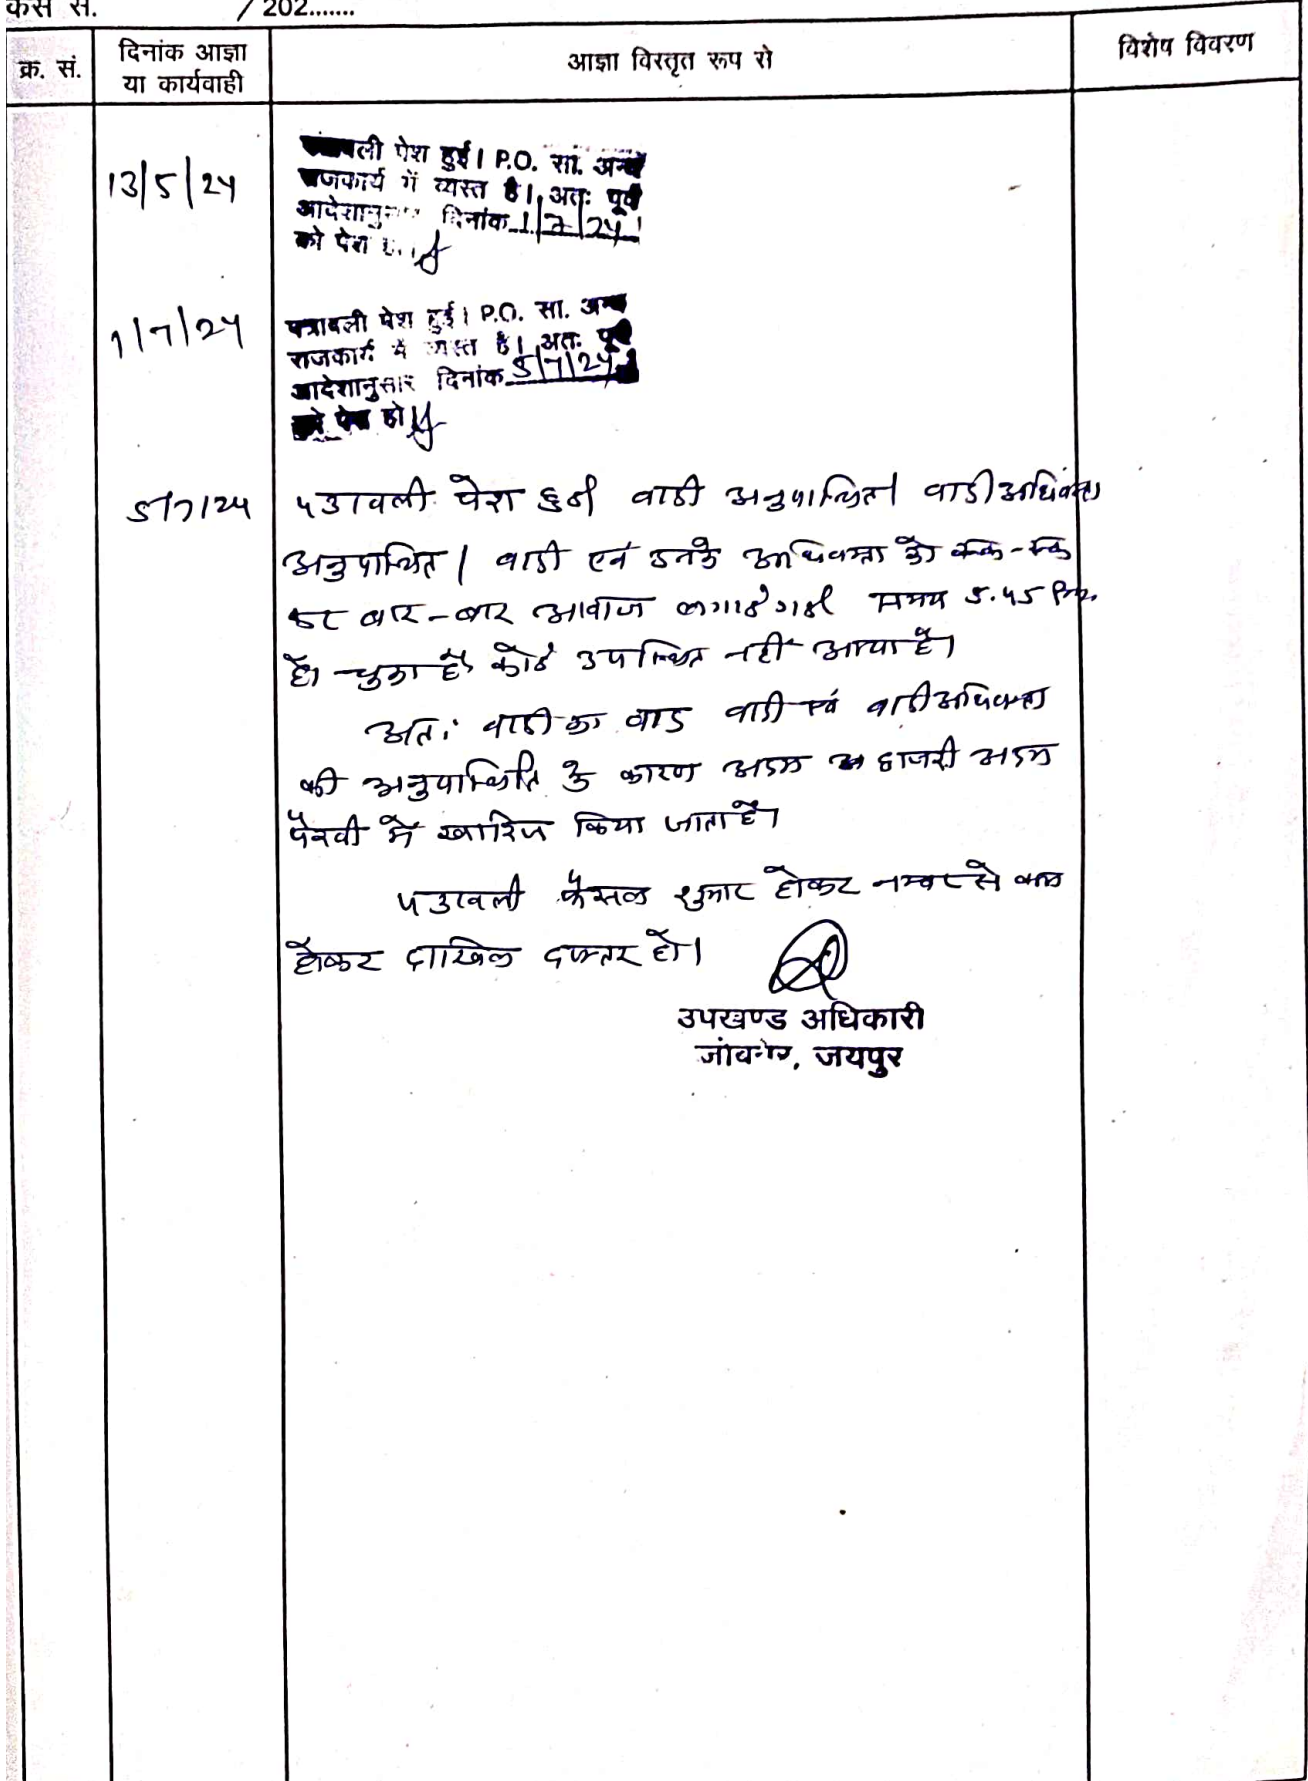 केस सं. / 202.......
क्र. सं.
दिनांक आज्ञा
या कार्यवाही
आज्ञा विस्तृत रूप से
विशेष विवरण
13/5/24
पेश हुई। P.O. सा. अन्य
राजकार्य में व्यस्त है। अतः पूर्व
दिनांक 1/7/24
को पेश
1/7/24
पत्रावली पेश हुई। P.O. सा. अन्य
राजकार्य में व्यस्त है। अतः पूर्व
आदेशानुसार दिनांक 5/7/24
को पेश हो।
5/7/24
पत्रावली पेश हुई वादी अनुपस्थित। वादी अधिवक्ता
अनुपस्थित। वादी एवं उनके अधिवक्ता को
कर बार-बार आवाज लगाई गई समय 5.45 P.M.
हो चुका है कोई उपस्थित नहीं आया है।
अतः वादी का वाद वादी एवं वादी अधिवक्ता
की अनुपस्थिति के कारण अदम हाजरी अदम
पैरवी में खारिज किया जाता है।
पत्रावली फैसल शुमार होकर नम्बर से कम
होकर दाखिल दफ्तर हो।
उपखण्ड अधिकारी
जयपुर